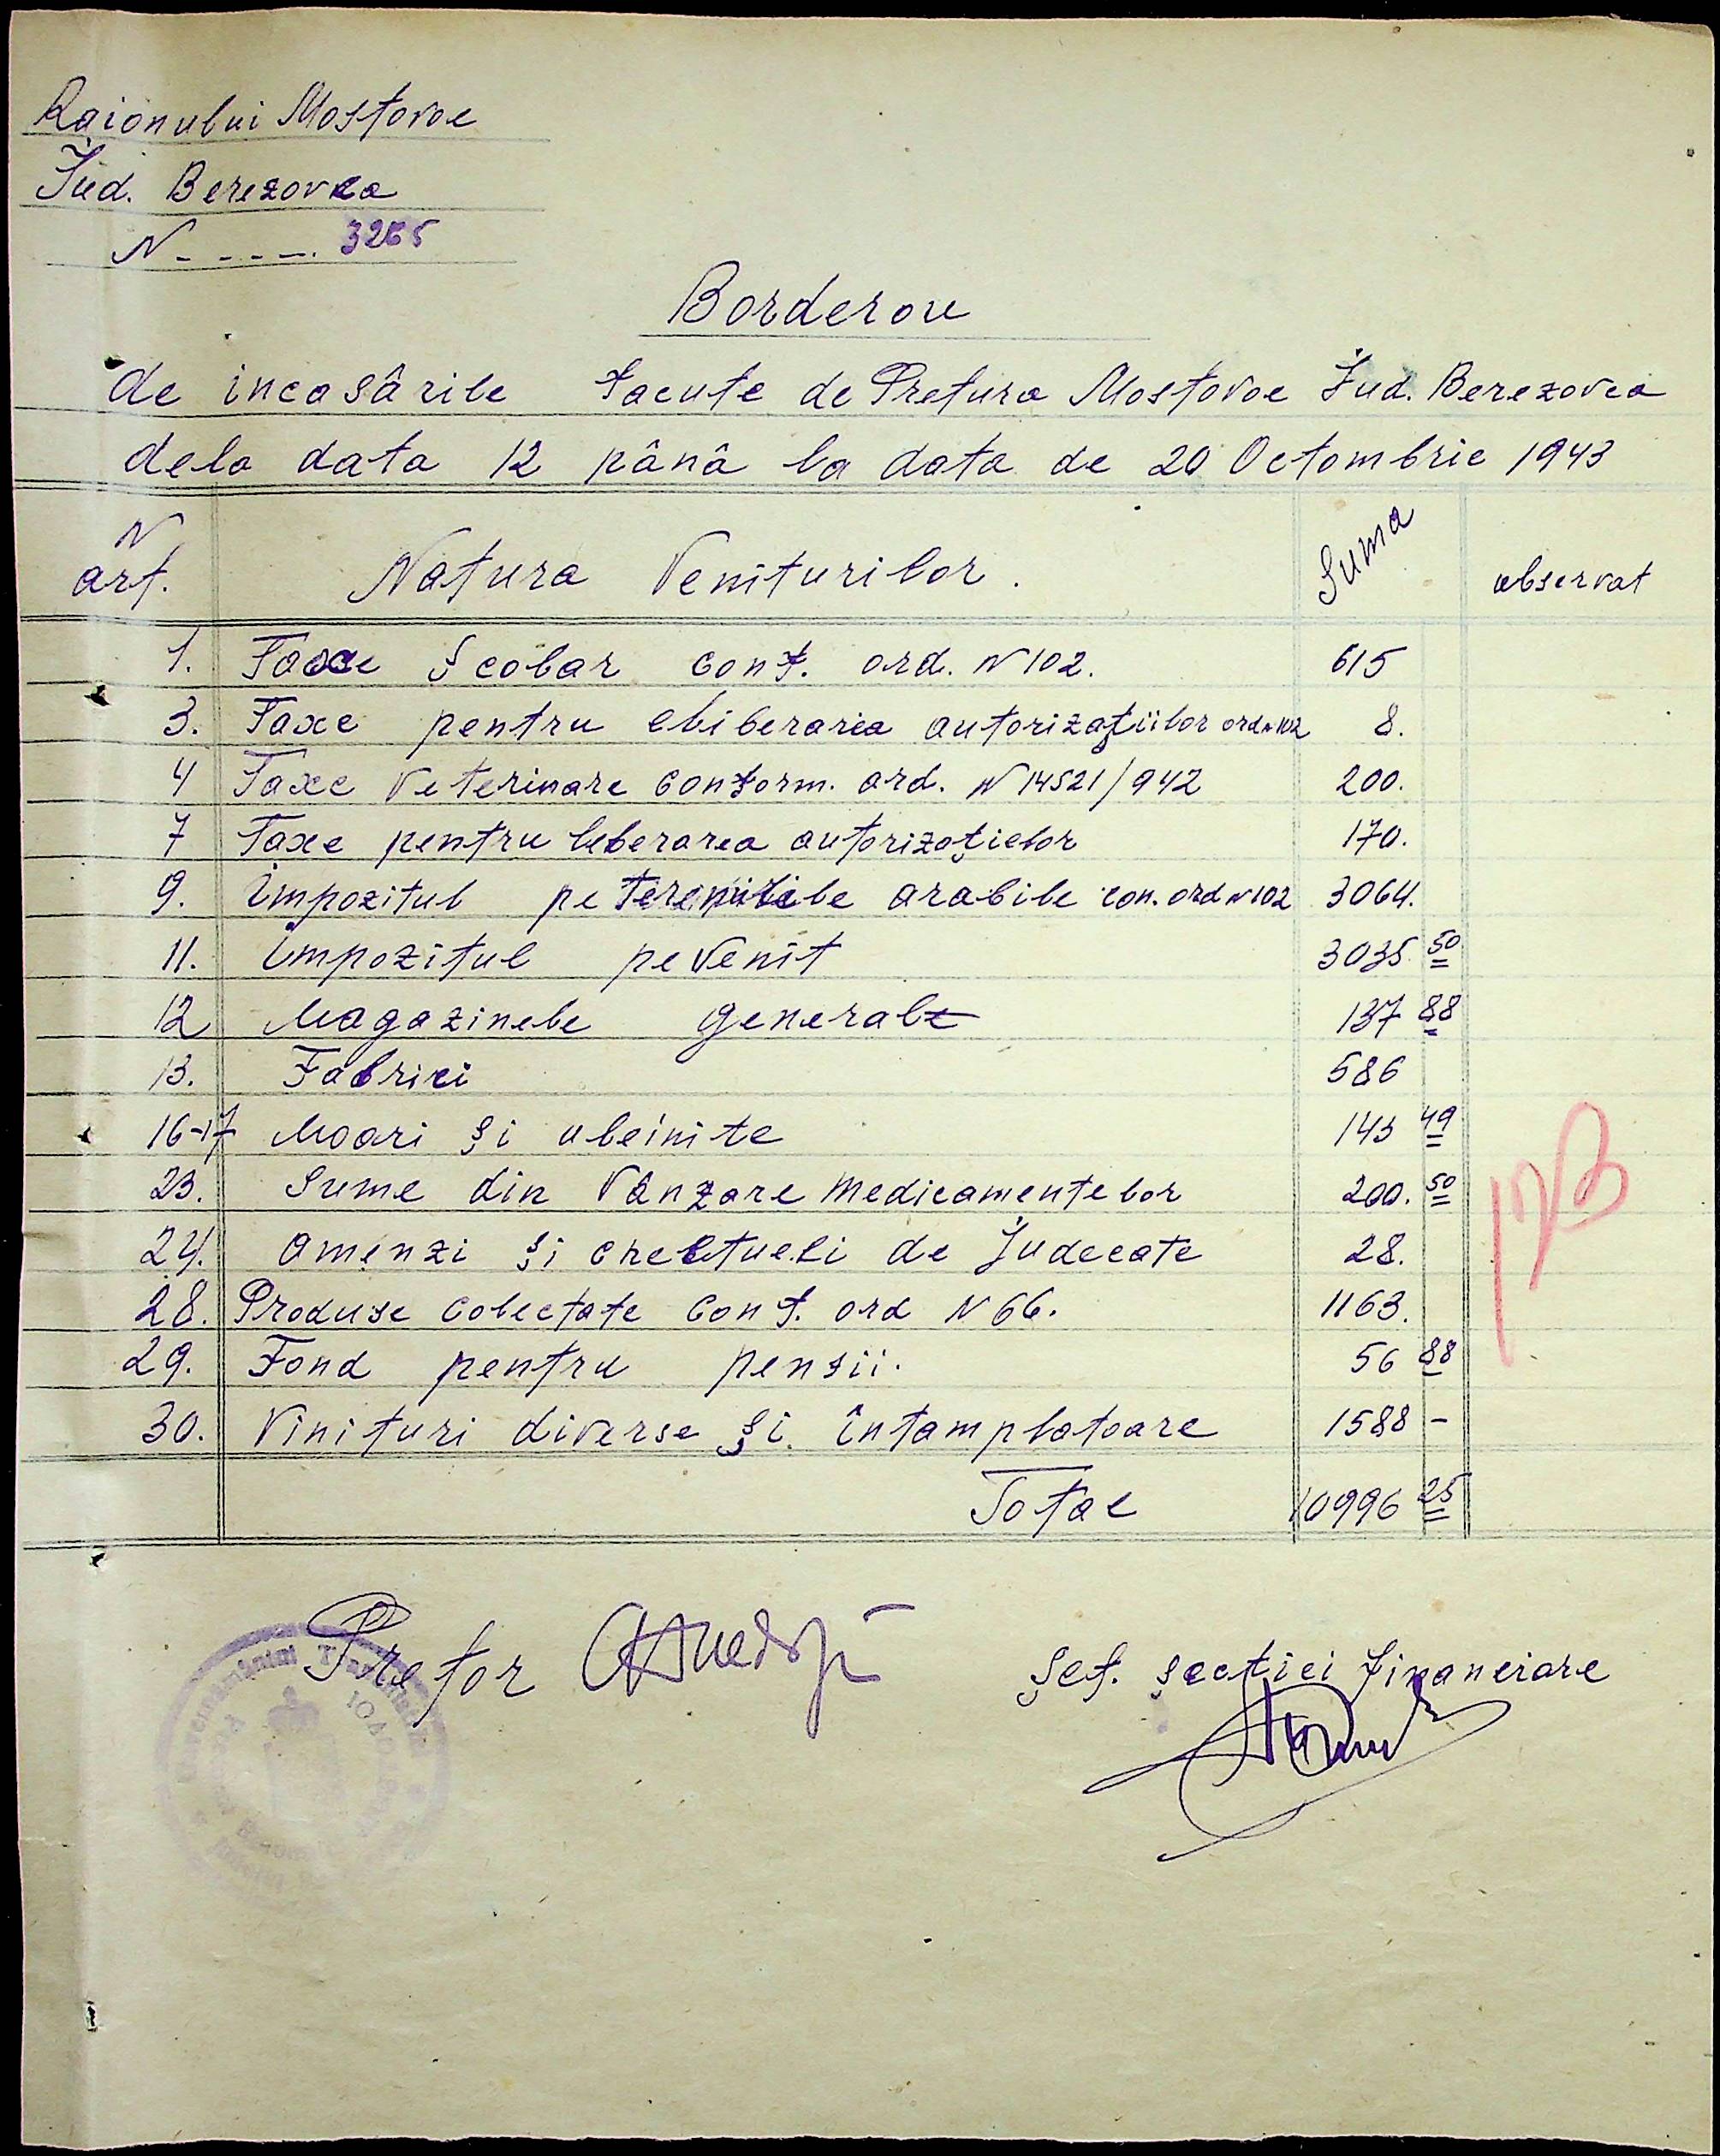 Raionului Mostovoe
Jud. Berezovca
N - - - - . 3265
Borderou
de incasârile facute de Pretura Mostovoe Jud. Berezovca
dela data 12 pânâ la data de 20 Octombrie 1943
N art. Natura Veniturilor. Suma observat
1. Taxe Şcolar conf. ord. N 102. 615
3. Taxe pentru eliberarea autorizaţiilor ord N 102 8.
4 Taxe Veterinare Conform. ord. N 14521/942 200.
7 Taxe pentru leberarea autorizaţielor 170.
9. Impozitul pe arabile con. ord N 102 3064.
11. Impozitul pe Venit 3035 50
12 Magazinele generale 137 88
13. Fabrici 586
16-17 Moari şi uleinite 143 49
23. Sume din Vânzare medicamentelor 200. 50
24. Amenzi şi cheltueli de Judecate 28.
28. Produse Colectate Conf. ord N 66. 1163.
29. Fond pentru pensii. 56 88
30. Vinituri diverse şi întamplatoare 1588 -
Total 10996 25
Pretor
Şef. şecţiei financiare